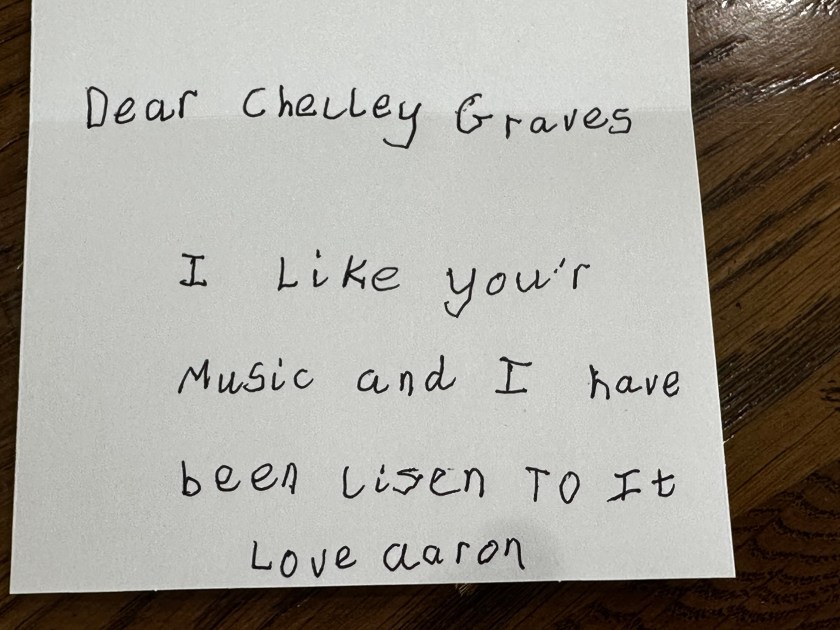 Dear Chelley Graves
I Like you'r
Music and I have
been Lisen To It
Love aaron